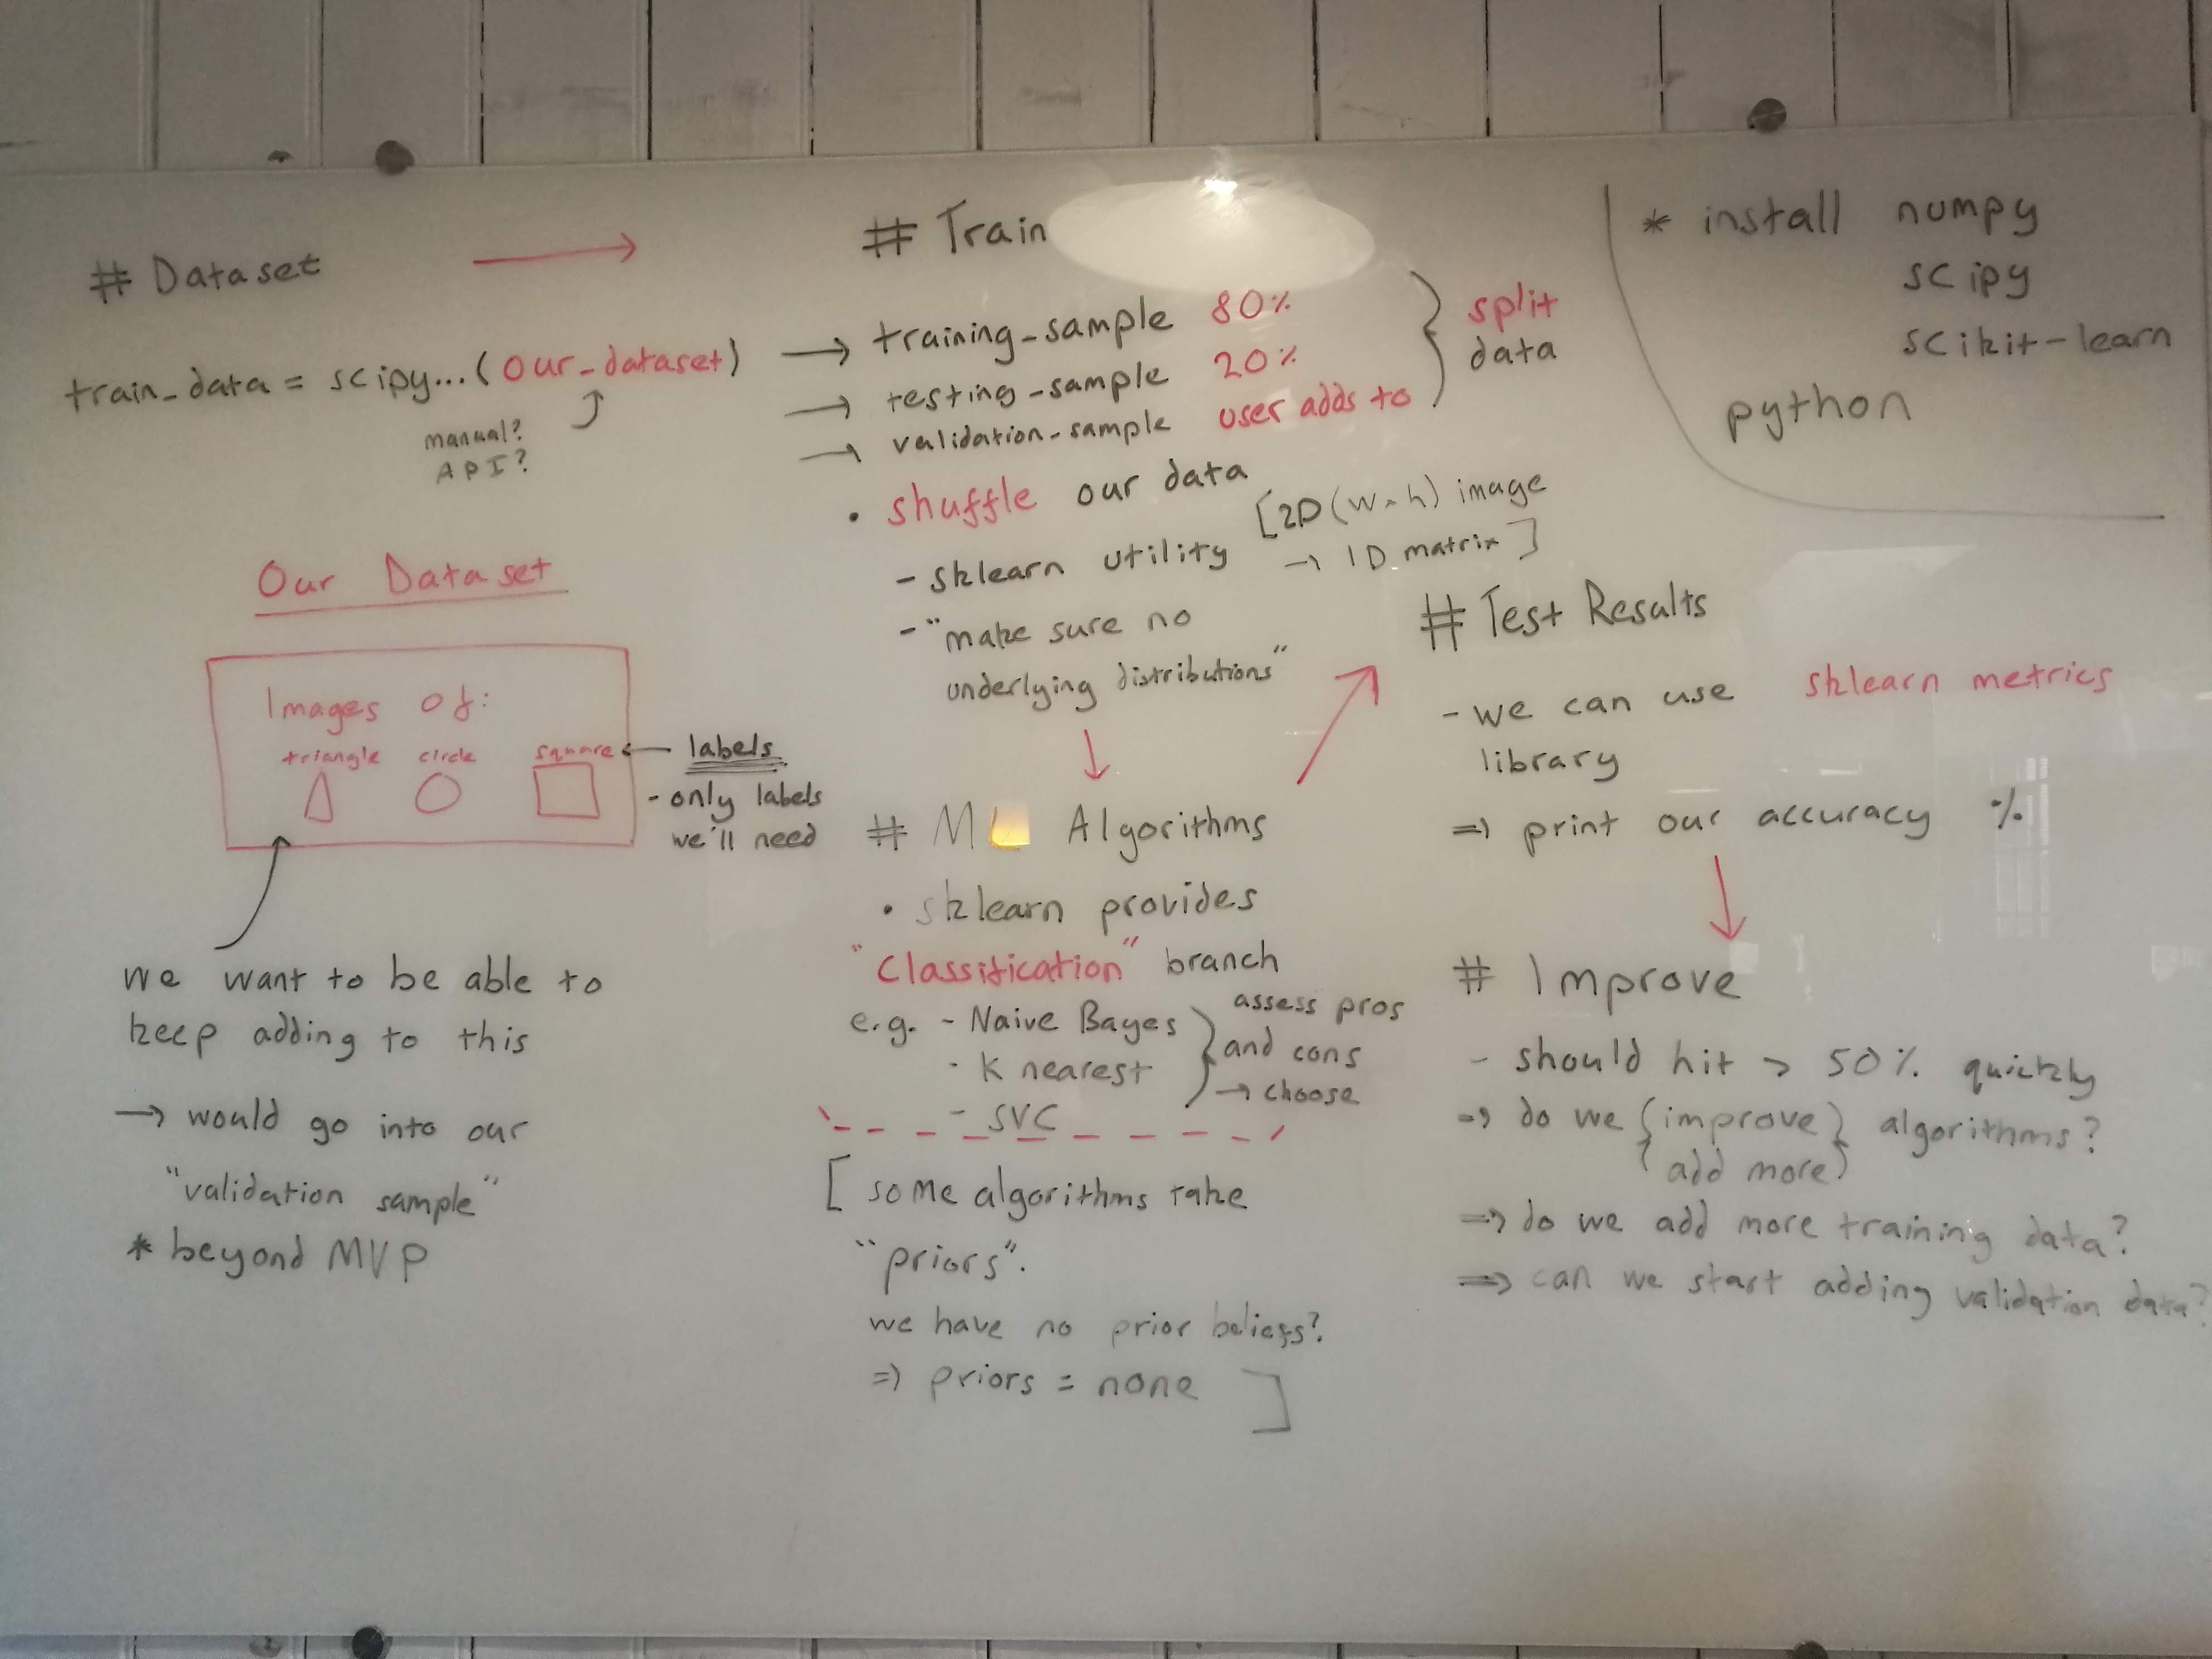 # Dataset
train_data = scipy...(our_dataset)
manual?
API?
Our Dataset
Images of:
triangle circle square
labels
- only labels
we'll need
we want to be able to
keep adding to this
→ would go into our
"validation sample"
* beyond MVP
# Train
→ training_sample 80%
→ testing-sample 20%
→ validation-sample user adds to
split
data
• shuffle our data
- sklearn utility
[2D (w×h) image
→ 1D matrix]
- "make sure no
underlying distributions"
# ML Algorithms
• sklearn provides
"Classification" branch
e.g. - Naive Bayes
- K nearest
- SVC
assess pros
and cons
→ choose
[some algorithms take
"priors".
we have no prior beliefs?
⇒ priors = none ]
* install numpy
scipy
scikit-learn
python
# Test Results
- we can use sklearn metrics
library
⇒ print our accuracy %
# Improve
- should hit > 50% quickly
⇒ do we {improve} algorithms?
{add more}
⇒ do we add more training data?
⇒ can we start adding validation data?